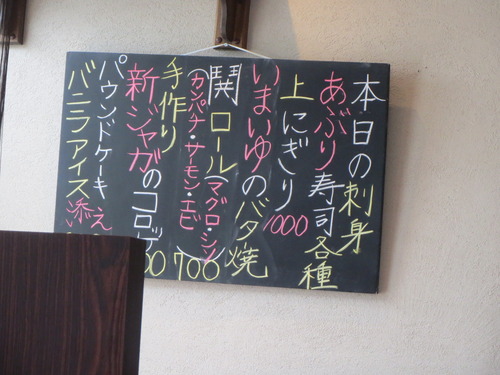 本日の刺身
あぶり寿司各種
上にぎり1000
いまいゆのバター焼
闘ロール(マグロ・シソ
(カンパチ・サーモン・エビ)700
手作り
新ジャガのコロッケ
パウンドケーキ
バニラアイス添え